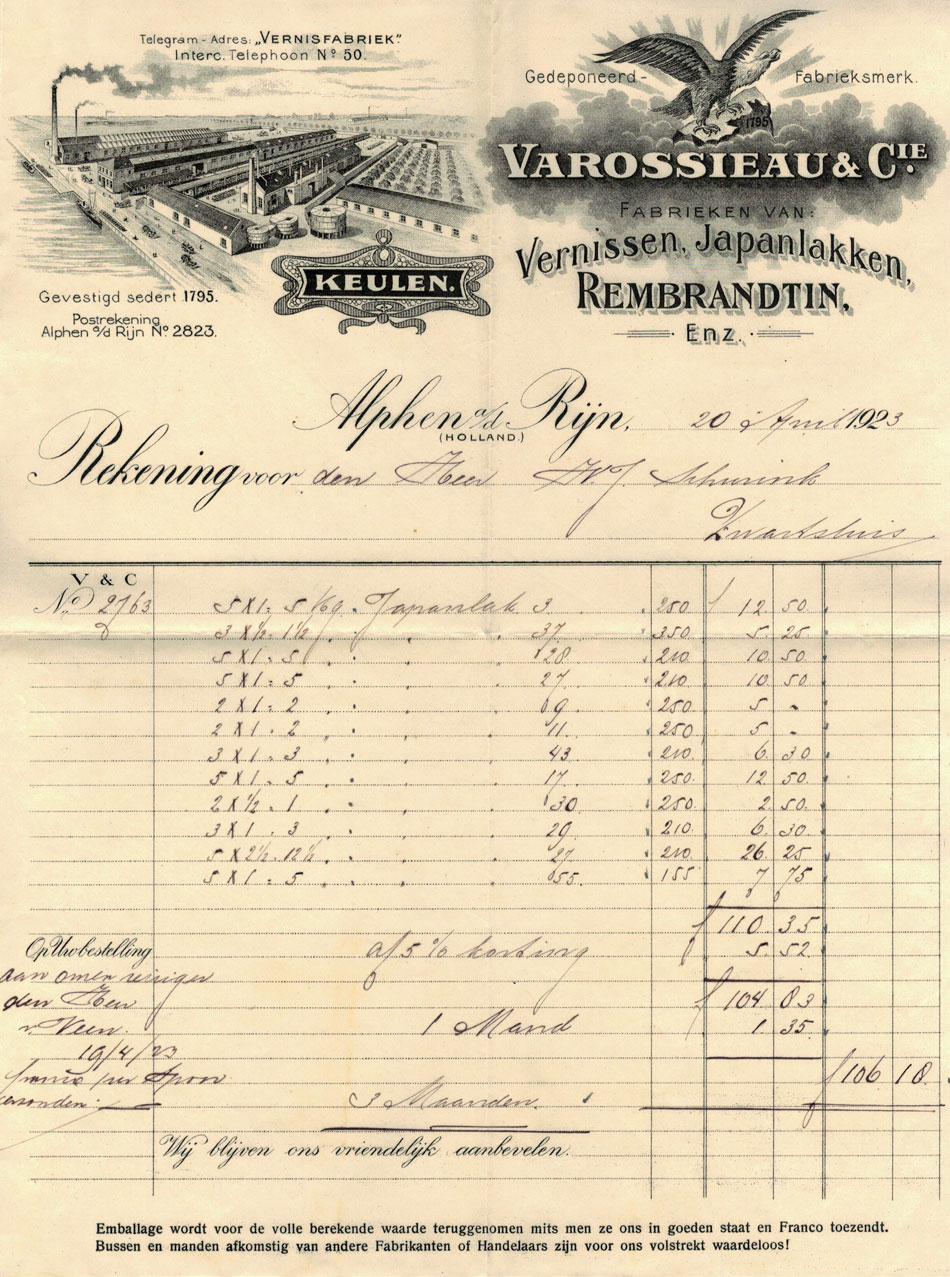 Telegram-Adres: „VERNISFABRIEK".
Interc. Telephoon No 50.
Gedeponeerd- Fabrieksmerk.
1795
VAROSSIEAU & CIE.
FABRIEKEN VAN:
Vernissen, Japanlakken,
REMBRANDTIN,
Enz.
KEULEN.
Gevestigd sedert 1795.
Postrekening
Alphen a/d Rijn No 2823.
Alphen a/d Rijn, 20 April 1923
(HOLLAND.)
Rekening voor den Heer W J. Schurink
Zwartsluis
V & C
No 2763 5 X 1 = 5 Kg. Japanlak 3 " 250 f 12 50
3 X ½ = 1½ " " " 37 " 350 5. 25
5 X 1 = 5 " " " 28 " 210 10 50
5 X 1 = 5 " " " 27 " 210 10 50
2 X 1 = 2 " " " 9 " 250 5 -
2 X 1 = 2 " " " 11 " 250 5 -
3 X 1 = 3 " " " 43 " 210 6 30
5 X 1 = 5 " " " 17 " 250 12 50
2 X ½ = 1 " " " 30 " 250 2 50
3 X 1 = 3 " " " 29 " 210 6 30
5 X 2½ = 12½ " " " 27 " 210 26 25
5 X 1 = 5 " " " 55 " 155 7 75
f 110. 35
Op Uw bestelling af 5 % korting 5. 52
aan onzen reiziger
den Heer f 104 83
v. Veen. 1 Mand 1. 35
19/4/23
franco per Spoor f 106 18
verzonden: 3 Maanden.
Wij blijven ons vriendelijk aanbevelen.
Emballage wordt voor de volle berekende waarde teruggenomen mits men ze ons in goeden staat en Franco toezendt.
Bussen en manden afkomstig van andere Fabrikanten of Handelaars zijn voor ons volstrekt waardeloos!